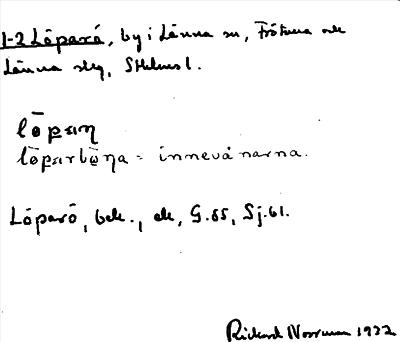 1-2 Löparö, by i Länna sn, Frötuna och
Länna slg, Sthlms l.
lōpaη
innevånarna.
Löparö, bek., ek, G.55, Sj.61.
Rickard Norrman 1932